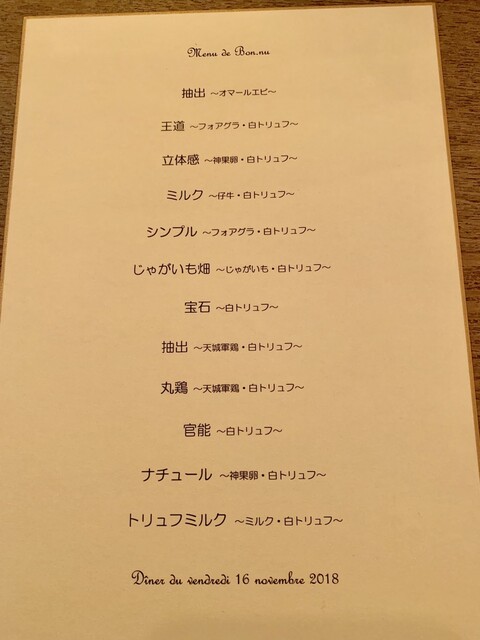 Menu de Bon.nu
抽出 ～オマールエビ～
王道 ～フォアグラ・白トリュフ～
立体感 ～神果卵・白トリュフ～
ミルク ～仔牛・白トリュフ～
シンプル ～フォアグラ・白トリュフ～
じゃがいも畑 ～じゃがいも・白トリュフ～
宝石 ～白トリュフ～
抽出 ～天城軍鶏・白トリュフ～
丸鶏 ～天城軍鶏・白トリュフ～
官能 ～白トリュフ～
ナチュール ～神果卵・白トリュフ～
トリュフミルク ～ミルク・白トリュフ～
Dîner du vendredi 16 novembre 2018